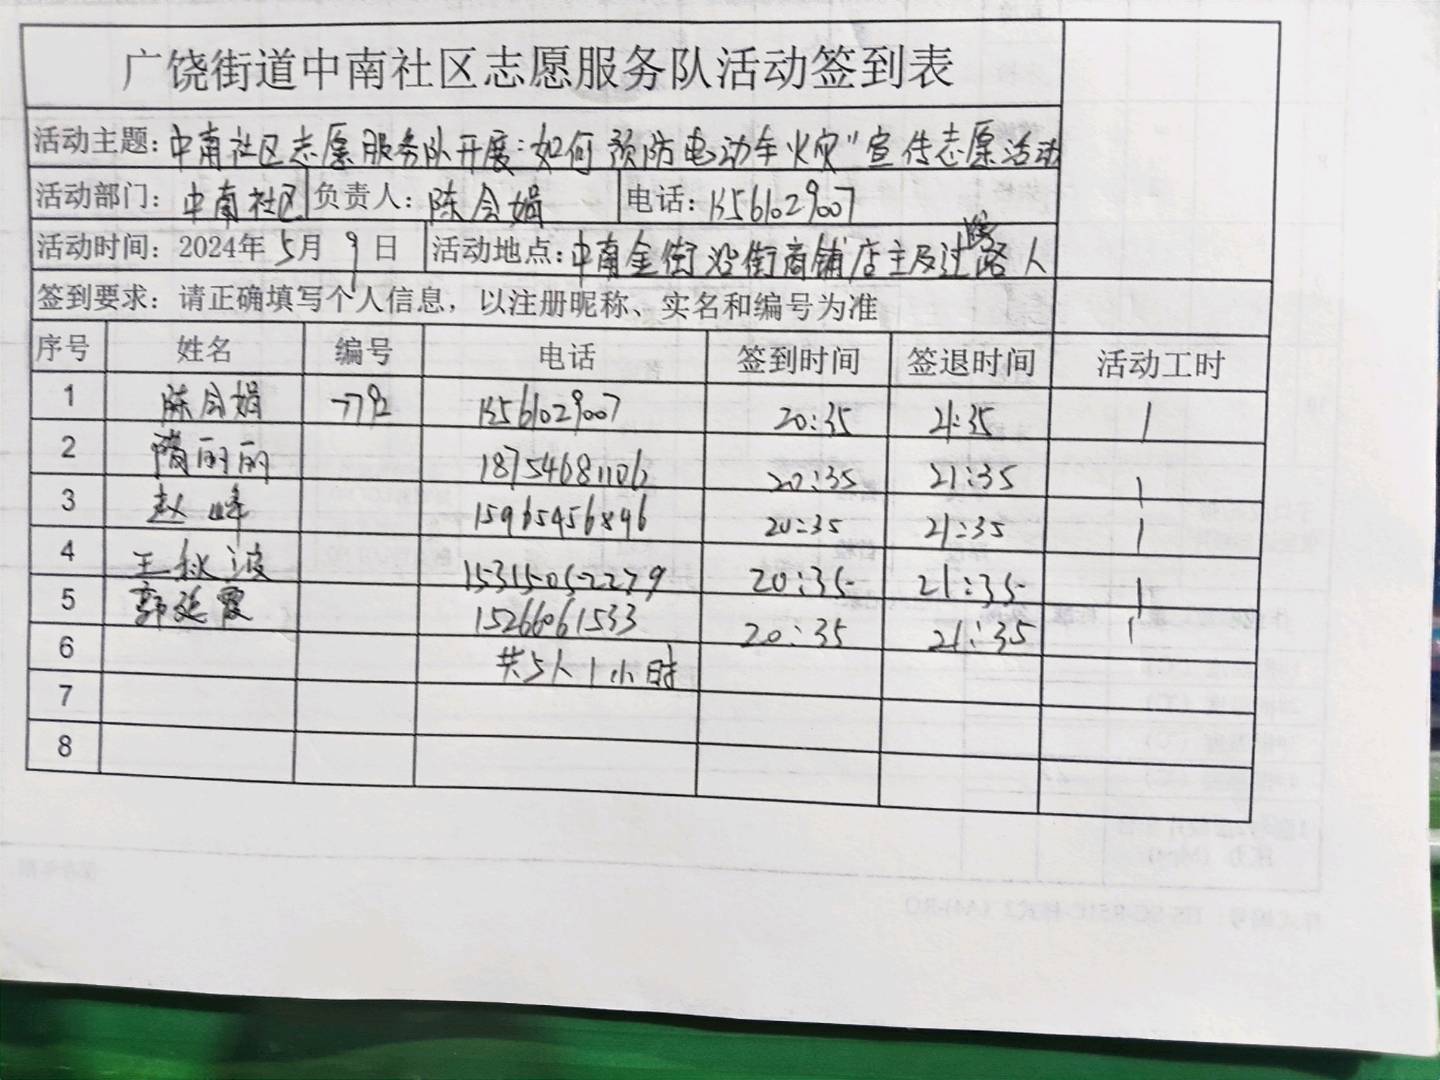 广饶街道中南社区志愿服务队活动签到表
活动主题：中南社区志愿服务队开展"如何预防电动车火灾"宣传志愿活动
活动部门：中南社区 负责人：陈会娟 电话：15561029007
活动时间：2024年5月9日 活动地点：中南金街沿街商铺店主及过路人
签到要求：请正确填写个人信息，以注册昵称、实名和编号为准
序号 姓名 编号 电话 签到时间 签退时间 活动工时
1 陈会娟 7792 15561029007 20:35 21:35 1
2 隋丽丽 18754681106 20:35 21:35 1
3 赵峰 15965456896 20:35 21:35 1
4 王秋波 15315052279 20:35 21:35 1
5 郭延霞 15266061533 20:35 21:35 1
6 共5人1小时
7
8